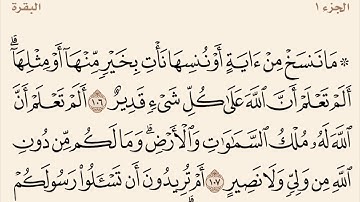 الجزء ١ البقرة
* مَا نَنسَخْ مِنْ ءَايَةٍ أَوْ نُنسِهَا نَأْتِ بِخَيْرٍ مِّنْهَآ أَوْ مِثْلِهَآۗ
أَلَمْ تَعْلَمْ أَنَّ ٱللَّهَ عَلَىٰ كُلِّ شَىْءٍ قَدِيرٌ ١٠٦ أَلَمْ تَعْلَمْ أَنَّ
ٱللَّهَ لَهُۥ مُلْكُ ٱلسَّمَٰوَٰتِ وَٱلْأَرْضِۗ وَمَا لَكُم مِّن دُونِ
ٱللَّهِ مِن وَلِىٍّ وَلَا نَصِيرٍ ١٠٧ أَمْ تُرِيدُونَ أَن تَسْـَٔلُوا۟ رَسُولَكُمْ